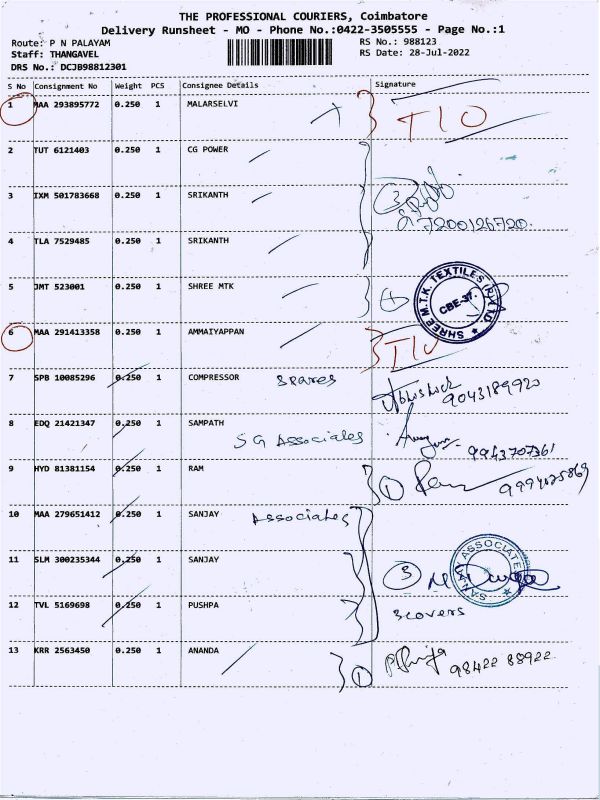 THE PROFESSIONAL COURIERS, Coimbatore
Delivery Runsheet - MO - Phone No.:0422-3505555 - Page No.:1
Route: P N PALAYAM RS No.: 988123
Staff: THANGAVEL RS Date: 28-Jul-2022
DRS No.: DCJB98812301
S No Consignment No Weight PCS Consignee Details Signature
1 MAA 293895772 0.250 1 MALARSELVI TIO
2 TUT 6121403 0.250 1 CG POWER
3 IXM 501783668 0.250 1 SRIKANTH 3
7200126720
4 TLA 7529485 0.250 1 SRIKANTH
5 JMT 523001 0.250 1 SHREE MTK
SHREE M.T.K. TEXTILES (P) LTD CBE-37.
6 MAA 291413358 0.250 1 AMMAIYAPPAN TIO
7 SPB 10085296 0.250 1 COMPRESSOR Spares Abhishek 9043189920
8 EDQ 21421347 0.250 1 SAMPATH
SG Associates 9943707361
9 HYD 81381154 0.250 1 RAM 1 Ram 9994025869
10 MAA 279651412 0.250 1 SANJAY Associates
SANJAY ASSOCIATES
11 SLM 300235344 0.250 1 SANJAY 3
12 TVL 5169698 0.250 1 PUSHPA 3 covers
13 KRR 2563450 0.250 1 ANANDA 1 98422 88922